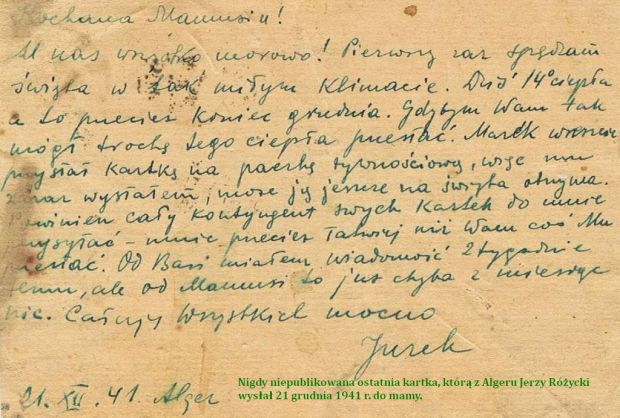 Kochana Mamusiu!
U nas wszystko morowo! Pierwszy raz spędzam
święta w tak miłym klimacie. Dziś 14° ciepła
a to przecież koniec grudnia. Gdybym Wam tak
mógł trochę tego ciepła przesłać. Marek wreszcie
przysłał kartkę na paczkę żywnościową, więc mu
zaraz wysłałem, może ją jeszcze na święta otrzyma.
Powinien cały kontyngent swych kartek do mnie
wysyłać – mnie przecież łatwiej niż Wam coś Mu
przesłać. Od Basi miałem wiadomość 2 tygodnie
temu, ale od Mamusi to już chyba 2 miesiące
nic. Całuję Wszystkich mocno
Jurek
21. XII. 41. Alger
Nigdy niepublikowana ostatnia kartka, którą z Algeru Jerzy Różycki
wysłał 21 grudnia 1941 r. do mamy.